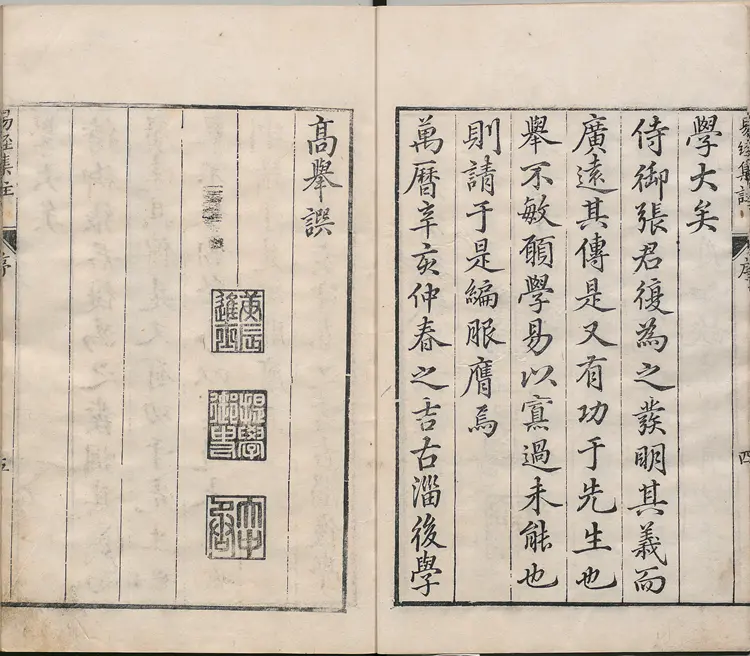 易經集註
序
四
學大矣
侍御張君復為之發明其義而
廣遠其傳是又有功于先生也
舉不敏願學易以寡過未能也
則請于是編服膺焉
萬曆辛亥仲春之吉古淄後學
高舉譔
庚辰進士
提學御史
易經集註
序
五